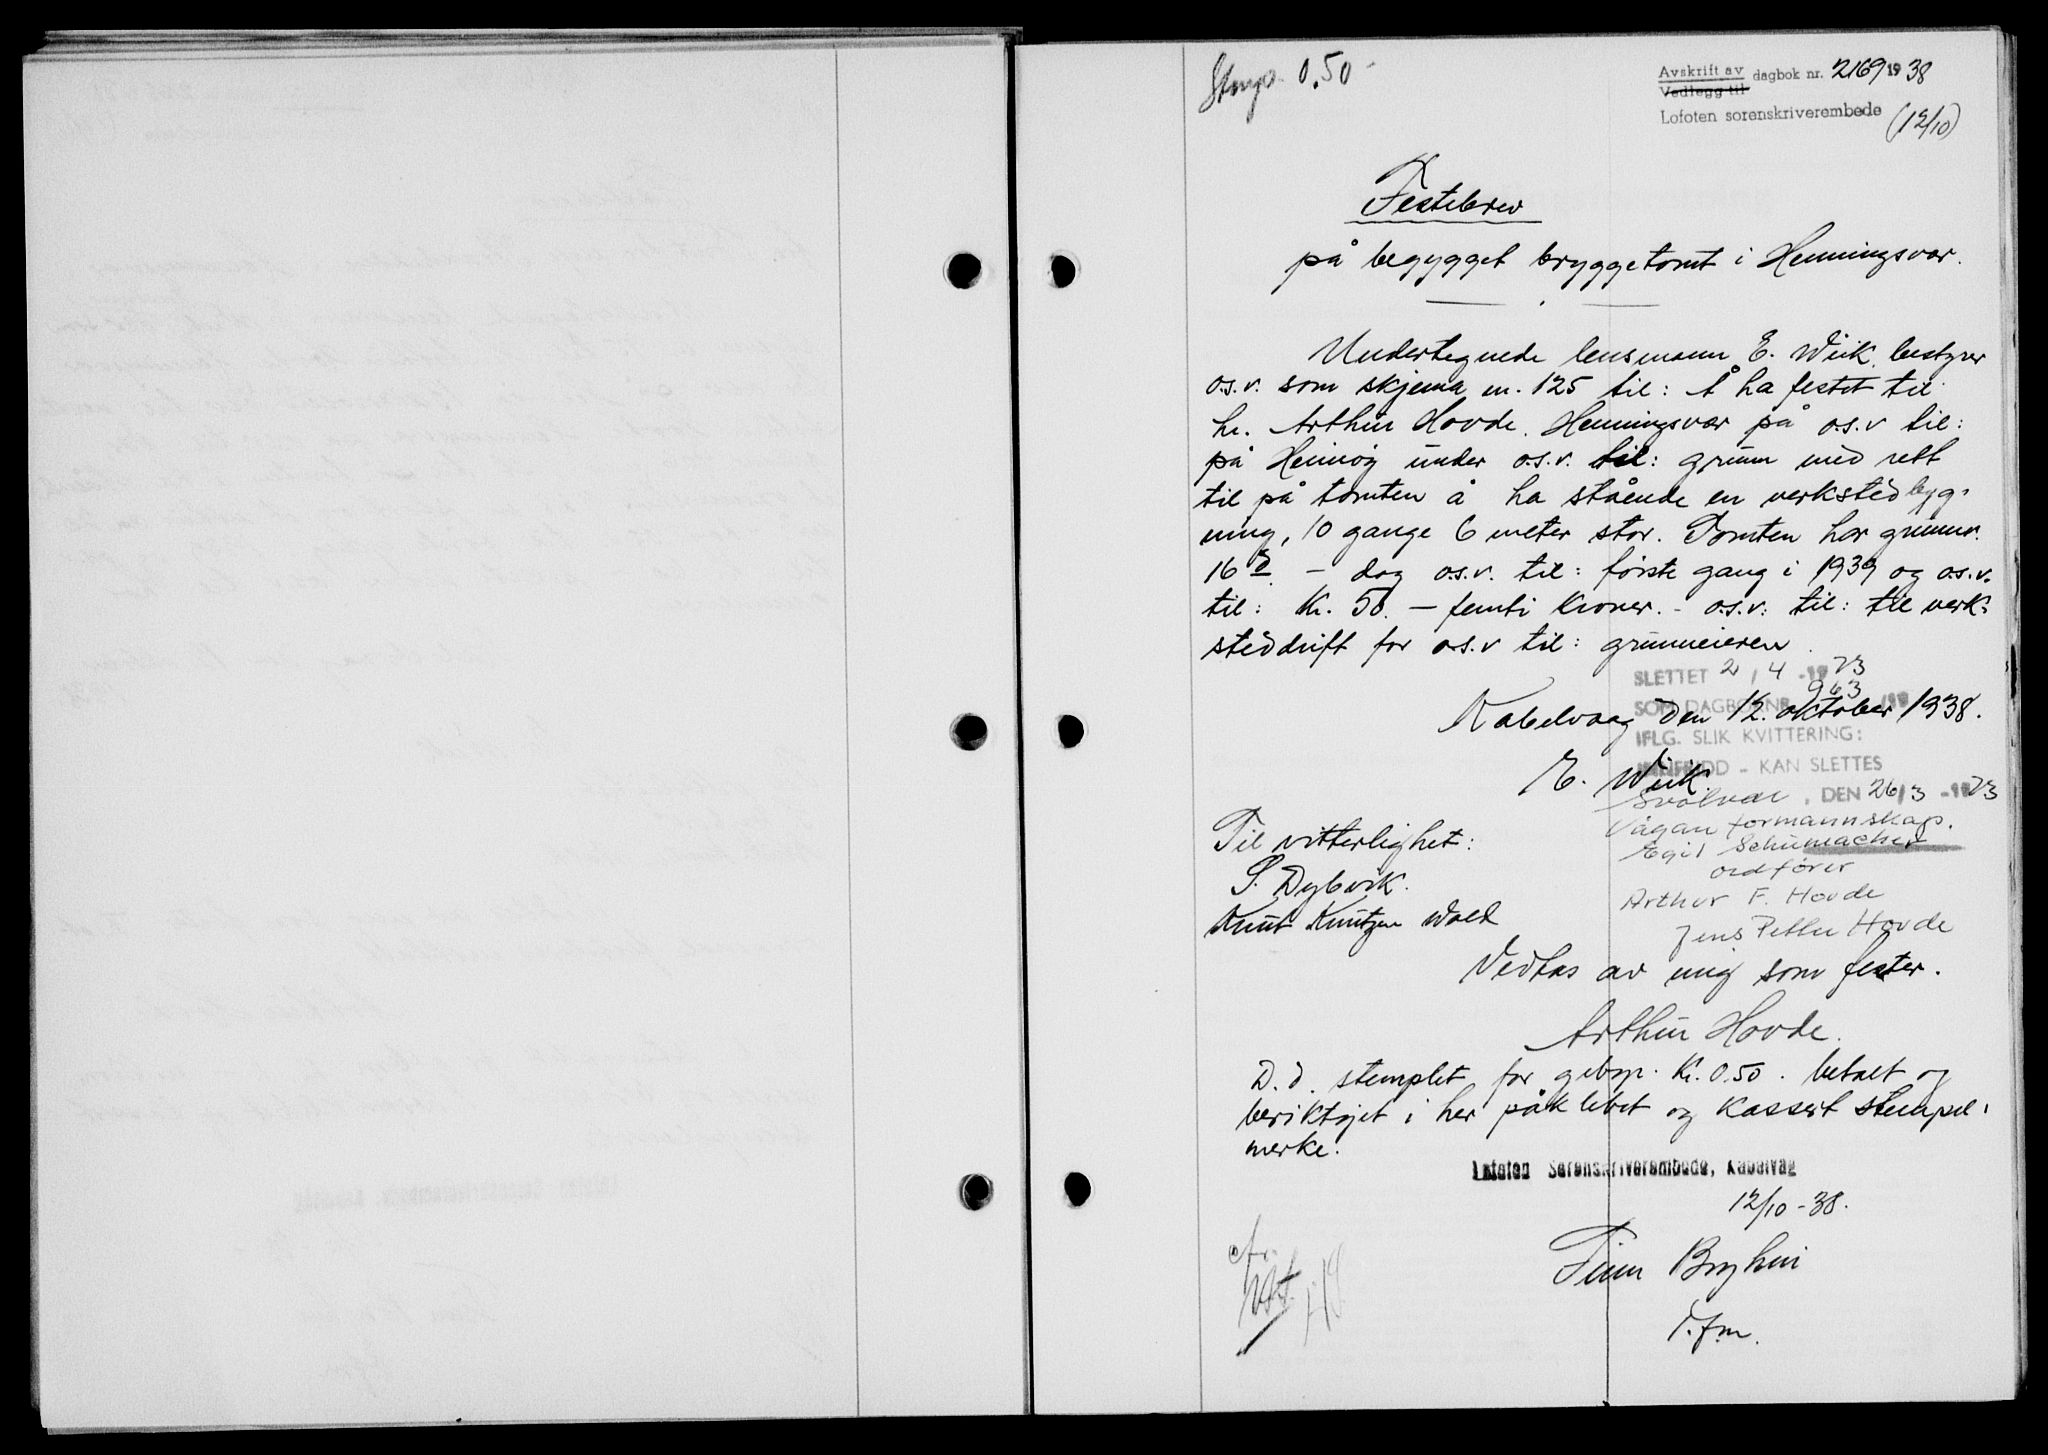 Stempl. 0.50 -
Avskrift av dagbok nr. 2169 1938
Vedlegg til
Lofoten sorenskriverembede (12/10)
Festebrev
på begygget bryggetomt i Henningsvær.
Undertegnede lensmann E. Wiik, bestyrer
o.s.v. som skjema nr. 125 til: Å ha festet til
hr. Arthur Hovde, Henningsvær på o.s.v til:
på Heimøy under o.s.v. til: grunn med rett
til på tomten å ha stående en verkstedbyg-
ning, 10 gange 6 meter stor. Tomten har grunnr.
16 d - dog o.s.v. til: første gang i 1939 og o.s.v.
til: Kr. 50. - femti kroner. - o.s.v. til: til verk-
steddrift for o.s.v til: grunneieren.
SLETTET 2 / 4 - 1973
SOM DAGBOKNR. 963 /19
Kabelvaag den 12. oktober 1938.
IFLG. SLIK KVITTERING:
INNFRIDD - KAN SLETTES
E. Wiik.
Svolvær, DEN 26/3 - 1973
Vågan formannskap.
Til vitterlighet:
Egil Schumacher
ordfører
S. Dybvik.
Arthur F. Hovde
Knut Knutzen Wold
Jens Petter Hovde
Vedtas av mig som fester.
Arthur Hovde.
D. d. stemplet for gebyr. Kr. 0.50. betalt og
beriktiget i her påklebet og kassert stempel-
merke.
Lofoten Sorenskriverembede, Kabelvåg
12/10 - 38.
Finn Bryhni
cfr.